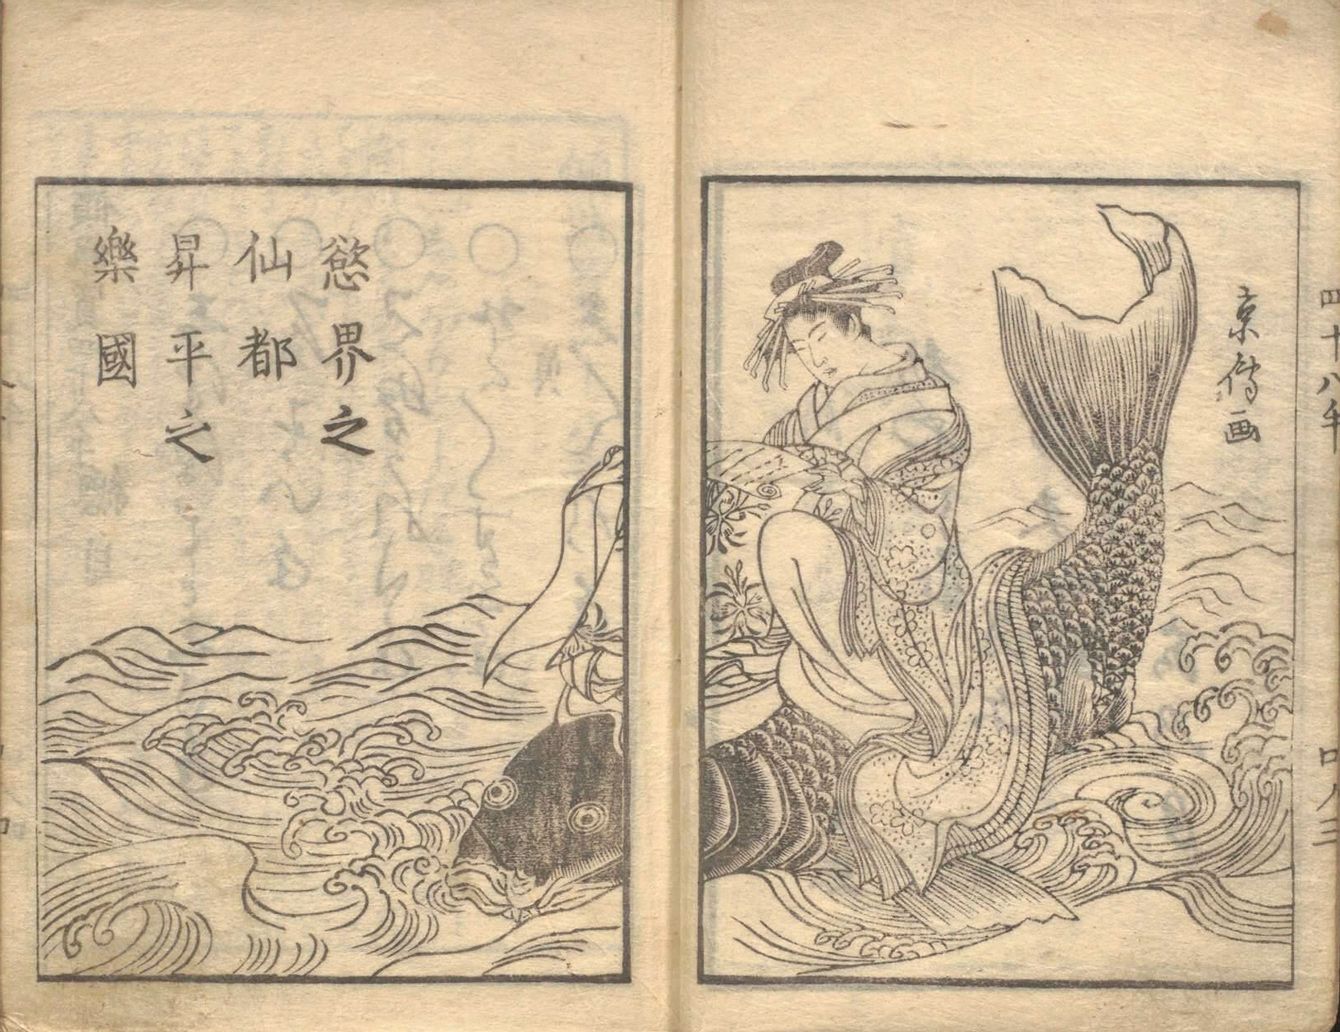 京傳画
慾界之
仙都
昇平之
樂國
四十八手
口ノ三